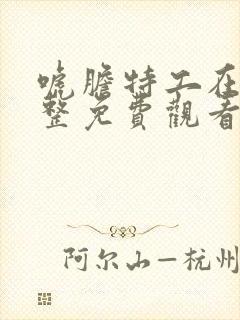 唬膽特工在
整免費觀看
阿尔山—杭州